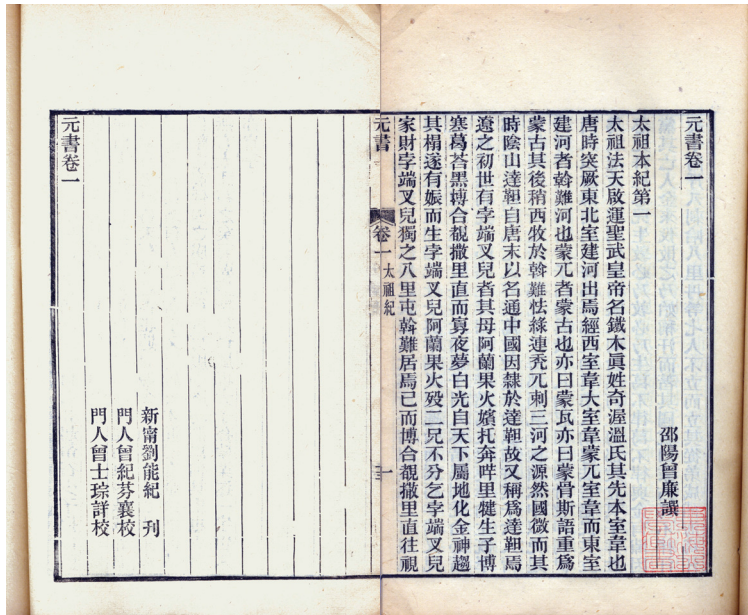 元書卷一
邵陽曾廉譔
太祖本紀第一
太祖法天啟運聖武皇帝名鐵木眞姓奇渥溫氏其先本室韋也
唐時突厥東北室建河出焉經西室韋大室韋蒙兀室韋而東室
建河者斡難河也蒙兀者蒙古也亦曰蒙瓦亦曰蒙骨斯語重爲
蒙古其後稍西牧於斡難怯綠連禿兀剌三河之源然國微而其
時陰山達靼自唐末以名通中國因隸於達靼故又稱爲達靼焉
遼之初世有孛端叉兒者其母阿蘭果火嬪托奔哔里犍生子博
寒葛荅黑博合覩撒里直而寡夜夢白光自天下屬地化金神趨
其榻遂有娠而生孛端叉兒阿蘭果火歿二兄不分乞孛端叉兒
家財孛端叉兒獨之八里屯斡難居焉已而博合覩撒里直往視
元書
卷一
太祖紀
一
新甯劉能紀 刊
門人曾紀芬襄校
門人曾士琮詳校
元書卷一